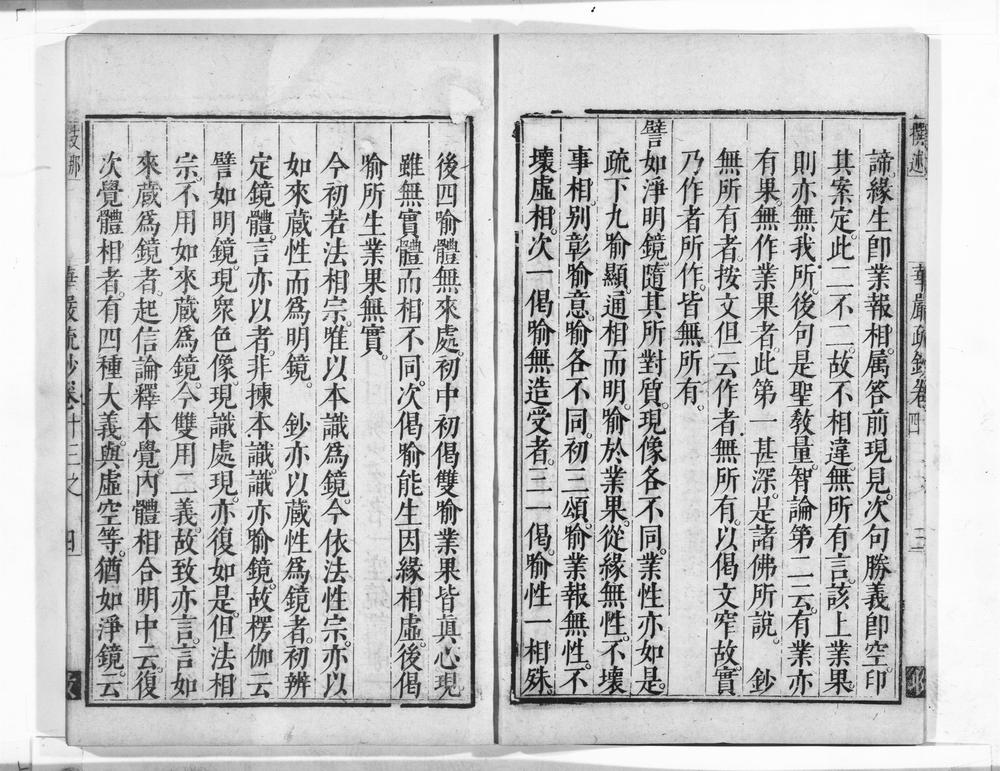 諦。緣生卽業報相。屬答前現見。次句勝義卽空。印
其案定。此二不二。故不相違。無所有言。該上業果。
則亦無我所。後句是聖敎量。智論第二云。有業亦
有果。無作業果者。此第一甚深。是諸佛所說。　鈔
無所有者。按文但云作者無所有。以偈文窄故。實
乃作者所作。皆無所有。
譬如淨明鏡。隨其所對質。現像各不同。業性亦如是。
疏下九喻顯。通相而明。喻於業果。從緣無性。不壞
事相。別彰喻意。喻各不同。初三頌。喻業報無性。不
壞虛相。次一偈喻無造受者。三一偈。喻性一相殊。
後四喻體無來處。初中初偈雙喻業果皆眞心現。
雖無實體而相不同。次偈喻能生因緣相虛。後偈
喻所生業果無實。
今初若法相宗。唯以本識爲鏡。今依法性宗。亦以
如來藏性而爲明鏡。　鈔亦以藏性爲鏡者。初辨
定鏡體。言亦以者。非揀本識。識亦喻鏡。故楞伽云
譬如明鏡。現衆色像。現識處現。亦復如是。但法相
宗。不用如來藏爲鏡。今雙用二義。故致亦言。言如
來藏爲鏡者。起信論釋本覺。內體相合明中云。復
次覺體相者。有四種大義。與虛空等。猶如淨鏡。云
撰述
華嚴疏鈔卷四
華嚴疏鈔卷十三之四